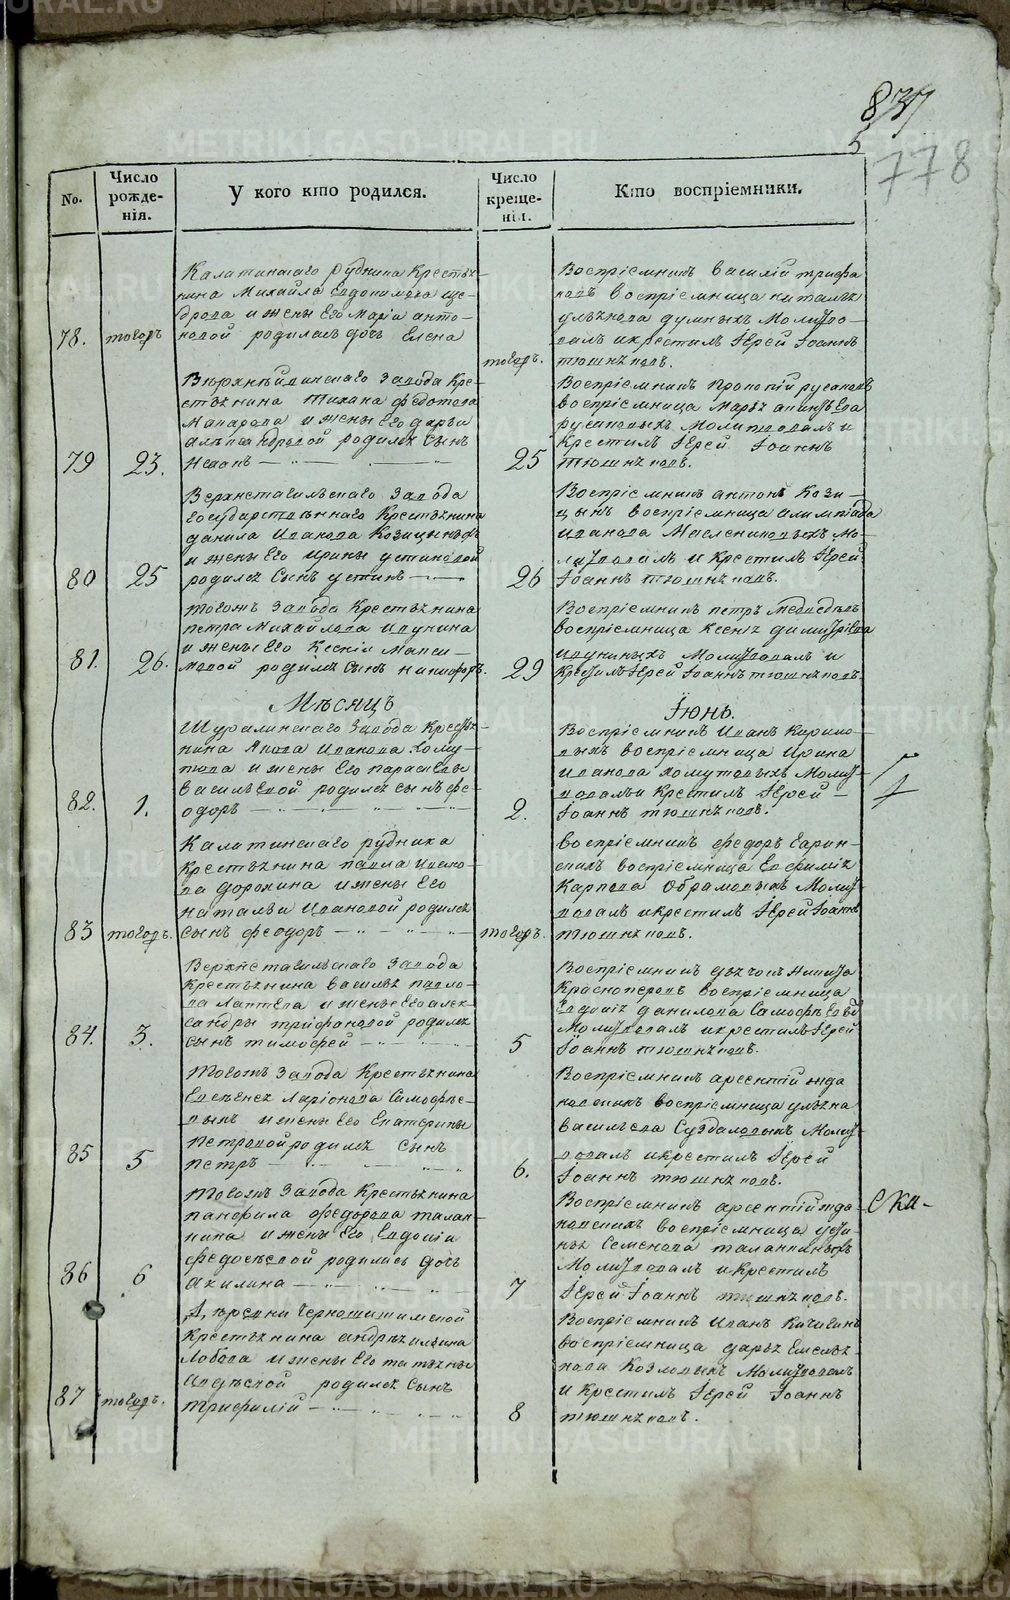 837
5
778
No.
Число рожде-нія.
У кого кто родился.
Число креще-нія.
Кто воспріемники.
78.
тогож
Калатинскаго рудника Крестья-
нина Михайла Евдокимова ще-
дрова и жены Его Марiи анто-
новой родилась дочь Елена
тогож.
Воспріемникъ василій трифа
новъ воспріемница наталья
ульянова думныхъ Молитво-
валъ и крестилъ Іерей Іоаннъ
тюшняковъ.
79
23.
Верхнейвинскаго завода Кре-
стьянина Тихана федотова
Макарова и жены Его дарьи
александровой родился сынъ
Иванъ
25
Воспріемникъ Прокопій русаковъ
воспріемница Марья
русаковыхъ Молитвовалъ и
Крестилъ Іерей Іоаннъ
тюшняковъ.
80
25
Верхнетагильскаго завода
Государственнаго Крестьянина
данила Иванова Козицыныхъ
и жены Его Ирины устиновой
родился Сынъ устинъ
26
Воспріемникъ антонъ Кози-
цынъ воспріемница алимпiада
Иванова Маслениковыхъ Мо-
литвовалъ и Крестилъ Іерей
Іоаннъ тюшняковъ.
81.
26.
Тогожъ завода Крестьянина
петра Михайлова Ивунина
и жены Его Ксении Макси-
мовой родился сынъ никифоръ.
29
Воспріемникъ петръ Медведевъ
воспріемница Ксенія димитріева
Ивуниныхъ Молитвовалъ и
Крестилъ Іерей Іоаннъ тюшняковъ.
Мѣсяцъ
Іюнь.
82.
1.
Шуралинскаго завода Крестья-
нина Якова Иванова Хому-
това и жены Его параскевы
васильевой родился сынъ фе-
одоръ
2.
Воспріемникъ Иванъ Кирило-
выхъ воспріемница Ирина
Иванова хомутовыхъ Молит-
вовалъ и Крестилъ Іерей
Іоаннъ тюшняковъ.
83
тогож.
Калатинскаго рудника
Крестьянина павла Иако-
ва дорохина и жены Его
натальи Ивановой родился
Сынъ феодоръ
тогож.
Воспріемникъ федоръ Гарин-
скихъ воспріемница Евфимія
Карпова Обрамовыхъ Молит-
вовалъ и крестилъ Іерей Іоаннъ
тюшняковъ.
84.
3.
Верхнетагильскаго завода
Крестьянина василья павло-
ва Лаптева и жены Его алек-
сандры трифановой родился
сынъ тимофей
5
Воспріемникъ дьячокъ никита
Красноперовъ воспріемница
Евдокія данилова Самофѣевы
Молитвовалъ и крестилъ Іерей
Іоаннъ тюшняковъ.
85
5
Тогожъ завода Крестьянина
Евсевея Ларіонова Самофѣе-
выхъ и жены Его Екатерины
Петровой родился сынъ
Петръ
6.
Воспріемникъ арсентій жда
новскихъ воспріемница ульяна
васильева Суздаловыхъ Молит-
вовалъ и крестилъ Іерей
Іоаннъ тюшняковъ.
86
6
Тогожъ завода Крестьянина
панфила федорова талан-
кина и жены Его Евдокіи
федосѣевой родилась дочь
акилина
7
Воспріемникъ арсентій жда-
новскихъ воспріемница усти-
нья Семенова таланкиныхъ
Молитвовалъ и Крестилъ
Іерей Іоаннъ тюшняковъ.
87
тогож.
Деревни Черношишимской
Крестьянина андрѣя ильина
Лобова и жены Его татьяны
Авдѣевой родился сынъ
Трифилій
8
Воспріемникъ Иванъ Кичигинъ
воспріемница дарья Емелья-
нова Козловыхъ Молитвовалъ
и Крестилъ Іерей Іоаннъ
тюшняковъ.
METRIKI.GASO-URAL.RU